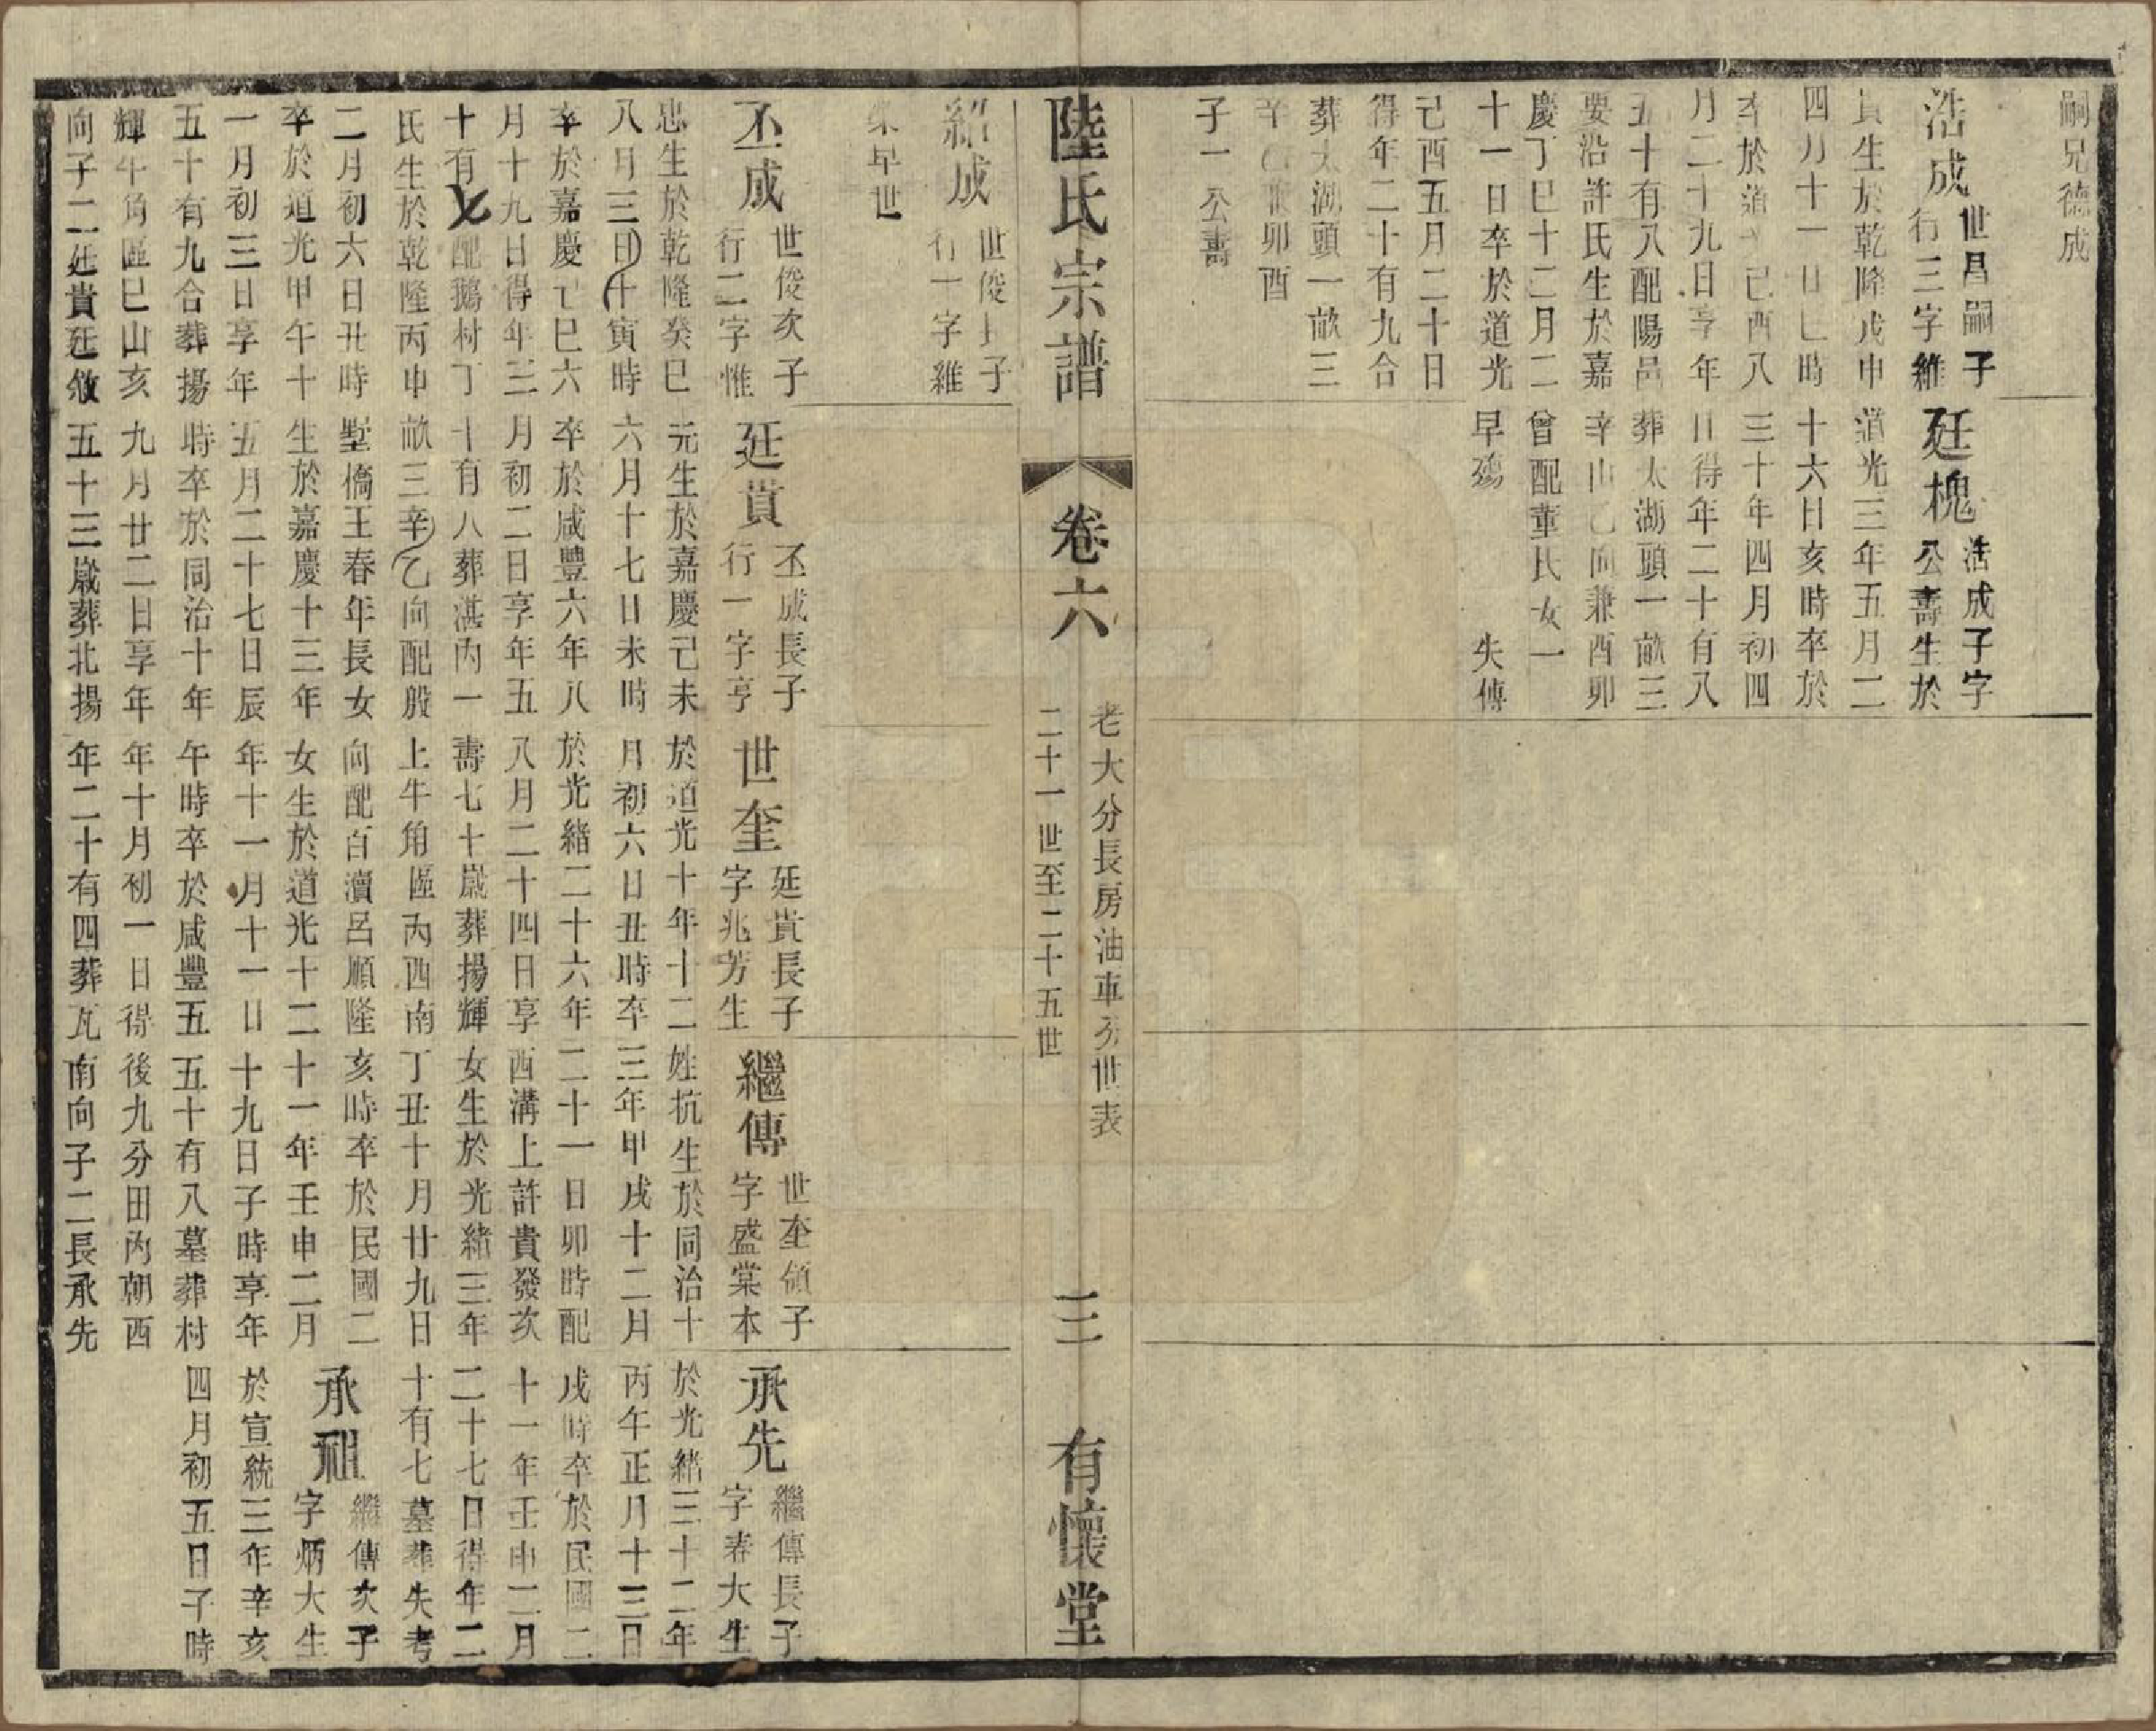 嗣兄德成
浩成
世昌嗣子
行三字維
貴生於乾隆戊申
四月十一日巳時
卒於道光己酉八
月二十九日享年
五十有八配陽邑
婁沿許氏生於嘉
慶丁巳十二月二
十一日卒於道光
己酉五月二十日
得年二十有九合
葬太湖頭一畝三
辛乙兼卯酉
子一公壽
廷槐
浩成子字
公壽生於
道光三年五月二
十六日亥時卒於
三十年四月初四
日得年二十有八
葬太湖頭一畝三
辛山乙向兼酉卯
曾配董氏女一
早殤 失傳
陸氏宗譜
卷六
老大分長房油車分世表
二十一世至二十五世
三
有懷堂
紹成
世俊長子
行一字維
榮早世
丕成
世俊次子
行二字惟
忠生於乾隆癸巳
八月三十日寅時
卒於嘉慶己巳六
月十九日得年三
十有七配鵝村丁
氏生於乾隆丙申
二月初六日丑時
卒於道光甲午十
一月初三日享年
五十有九合葬揚
輝牛角區巳山亥
向子二廷貴廷敘
廷貴
丕成長子
行一字亨
元生於嘉慶己未
六月十七日未時
卒於咸豐六年八
月初二日享年五
十有八葬湛內一
畝三辛乙向配殷
墅橋王春年長女
生於嘉慶十三年
五月二十七日辰
時卒於同治十年
九月廿二日享年
五十三歲葬北揚
世奎
廷貴長子
字兆芳生
於道光十年十二
月初六日丑時卒
於光緒二十六年
八月二十四日享
壽七十歲葬揚輝
上牛角區丙西南
向配百瀆呂順隆
女生於道光十二
年十一月十一日
午時卒於咸豐五
年十月初一日得
年二十有四葬瓦
繼傳
世奎領子
字盛棠本
姓杭生於同治十
三年甲戌十二月
二十一日卯時配
西溝上許貴發次
女生於光緒三年
丁丑十月廿九日
亥時卒於民國二
十一年壬申二月
十九日子時享年
五十有八墓葬村
後九分田內朝西
南向子二長承先
承先
繼傳長子
字春大生
於光緒三十二年
丙午正月十三日
戌時卒於民國二
十一年壬申二月
二十七日得年二
十有七墓葬失考
承祖
繼傳次子
字炳大生
於宣統三年辛亥
四月初五日子時